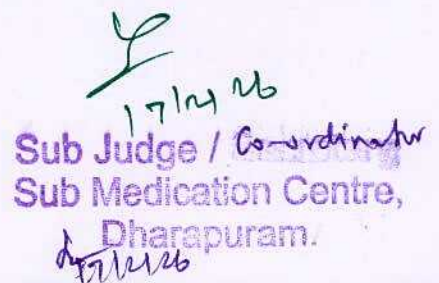 17/2/26
Sub Judge / Co-ordinator
Sub Medication Centre,
Dharapuram.
17/2/26